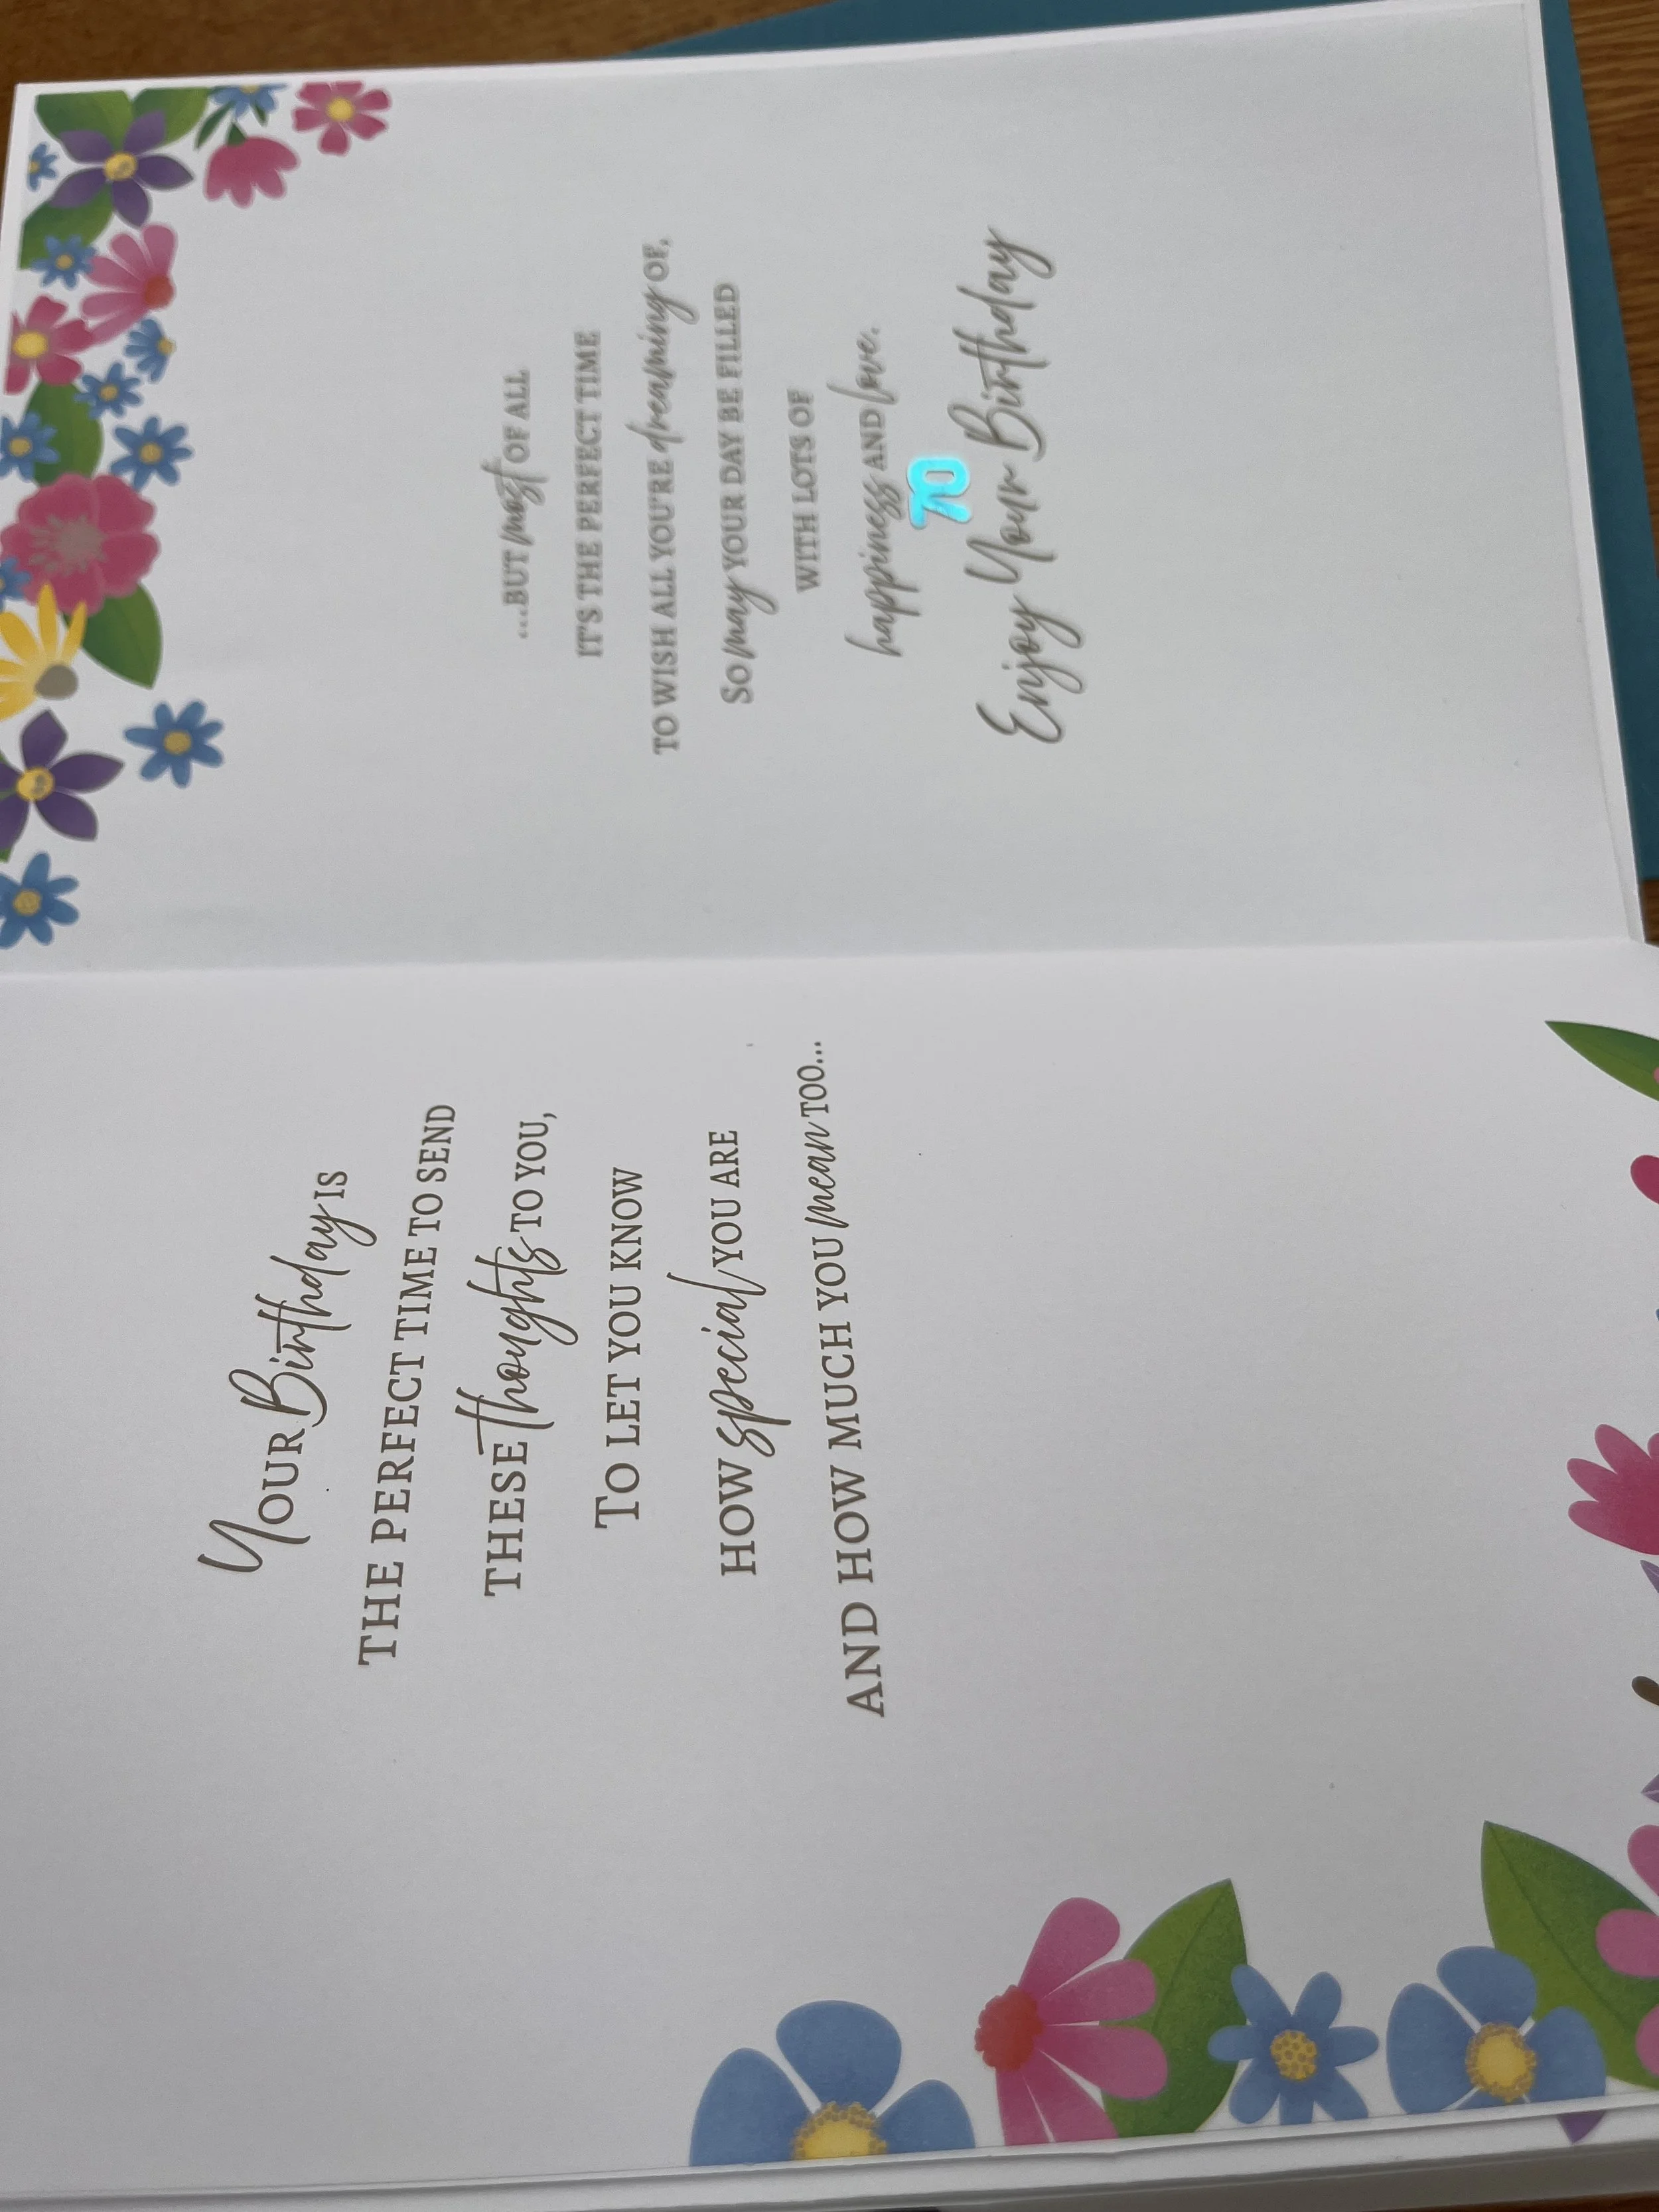 Your Birthday IS
THE PERFECT TIME TO SEND
THESE thoughts TO YOU,
TO LET YOU KNOW
HOW special YOU ARE
AND HOW MUCH YOU mean TOO...
...BUT most OF ALL
IT'S THE PERFECT TIME
TO WISH ALL YOU'RE dreaming OF,
SO may YOUR DAY BE FILLED
WITH LOTS OF
happiness AND love.
70
Enjoy Your Birthday